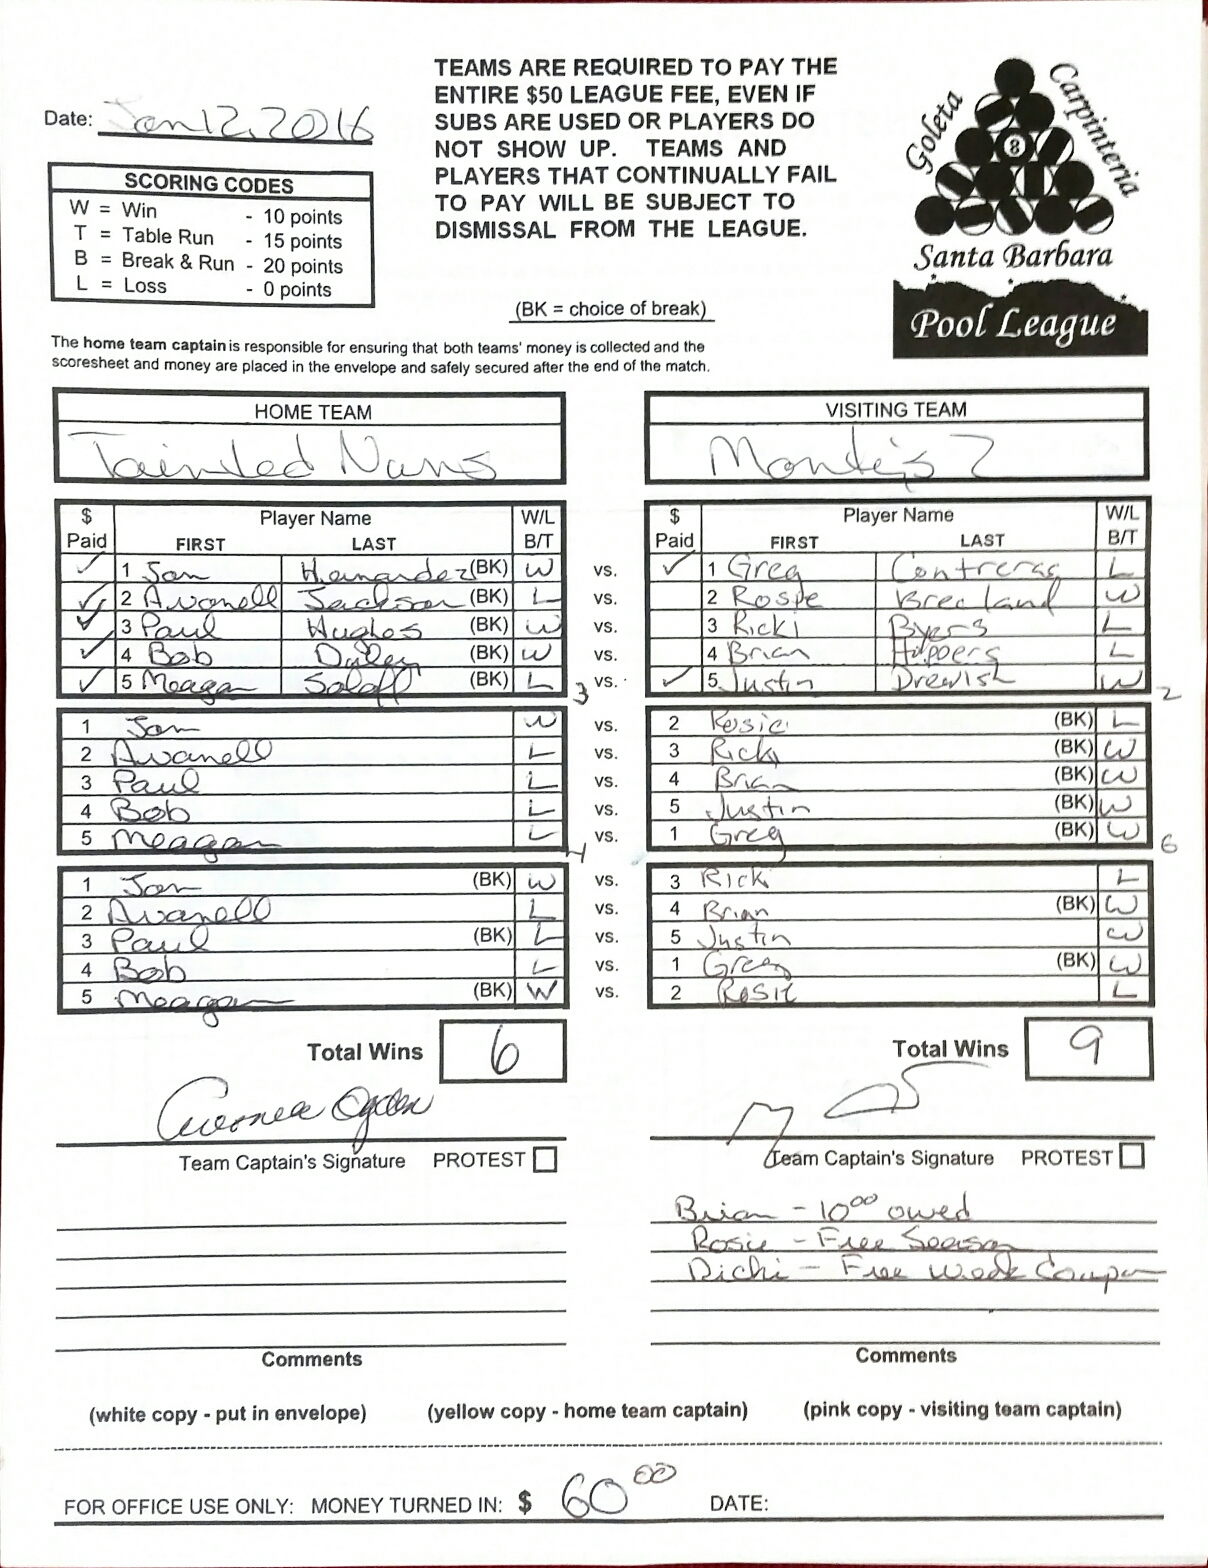 Date: Jan 12, 2016
TEAMS ARE REQUIRED TO PAY THE
ENTIRE $50 LEAGUE FEE, EVEN IF
SUBS ARE USED OR PLAYERS DO
NOT SHOW UP. TEAMS AND
PLAYERS THAT CONTINUALLY FAIL
TO PAY WILL BE SUBJECT TO
DISMISSAL FROM THE LEAGUE.
Goleta
Carpinteria
8
Santa Barbara
Pool League
SCORING CODES
W = Win - 10 points
T = Table Run - 15 points
B = Break & Run - 20 points
L = Loss - 0 points
(BK = choice of break)
The home team captain is responsible for ensuring that both teams' money is collected and the
scoresheet and money are placed in the envelope and safely secured after the end of the match.
HOME TEAM VISITING TEAM
Tainted Nuns
$ Player Name W/L $ Player Name W/L
Paid FIRST LAST B/T Paid FIRST LAST B/T
✓ 1 Jan Hernandez (BK) W vs. ✓ 1 Greg Contreras L
✓ 2 Avanell Jackson (BK) L vs. 2 Rosie Breeland W
✓ 3 Paul Hughes (BK) W vs. 3 Ricki Byers L
✓ 4 Bob (BK) W vs. 4 Brian L
✓ 5 Meagan (BK) L 3 vs. ✓ 5 Justin W 2
1 Jan W vs. 2 Rosie (BK) L
2 Avanell L vs. 3 Ricki (BK) W
3 Paul L vs. 4 Brian (BK) W
4 Bob L vs. 5 Justin (BK) W
5 Meagan L 4 vs. 1 Greg (BK) W 6
1 Jan (BK) W vs. 3 Ricki L
2 Avanell L vs. 4 Brian (BK) W
3 Paul (BK) L vs. 5 Justin W
4 Bob L vs. 1 Greg (BK) W
5 Meagan (BK) W vs. 2 Rosie L
Total Wins 6 Total Wins 9
Ogden
Team Captain's Signature PROTEST Team Captain's Signature PROTEST
Brian - 10 00 owed
Rosie - Free Season
Free Week
Comments Comments
(white copy - put in envelope) (yellow copy - home team captain) (pink copy - visiting team captain)
FOR OFFICE USE ONLY: MONEY TURNED IN: $ 60 00 DATE: